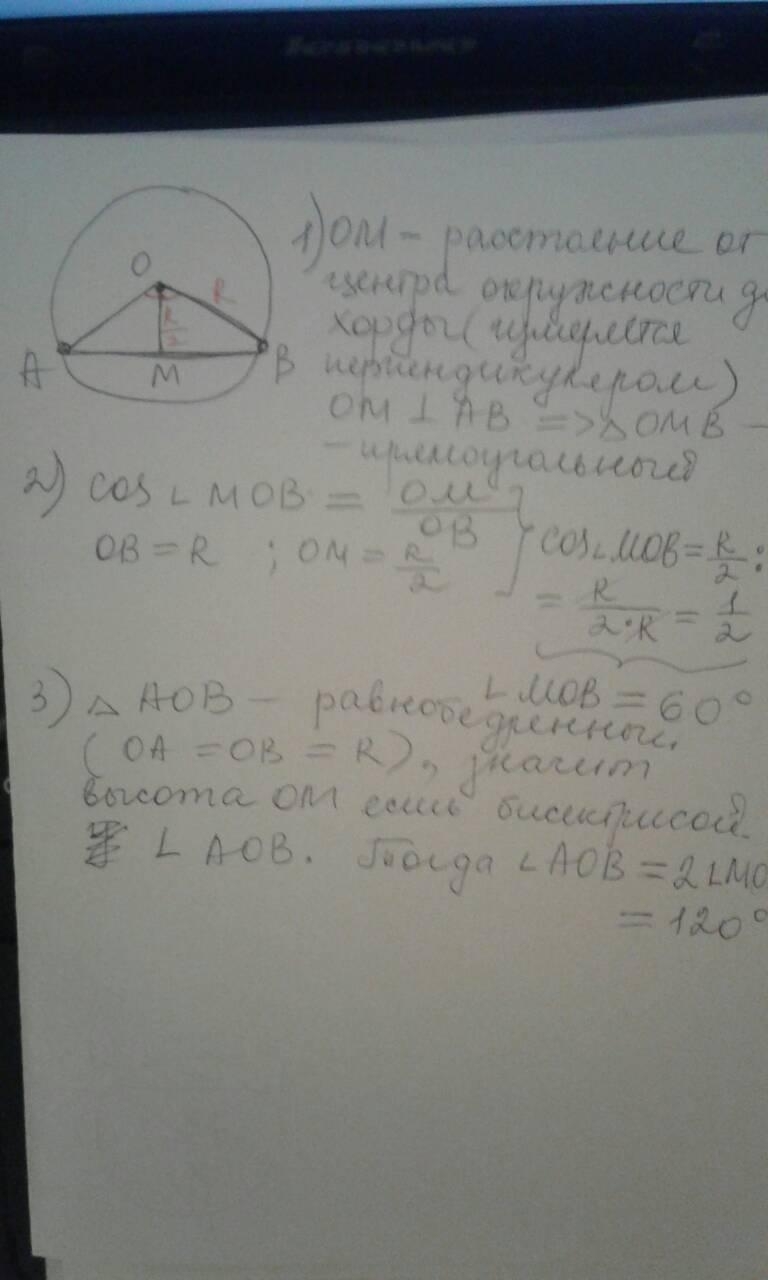 lenovo
1) OM – расстояние от
центра окружности до
хорды (измеряется
перпендикуляром)
OM ⊥ AB => △OMB –
– прямоугольный
O
R
R/2
A
M
B
2) cos∠MOB = OM/OB
OB = R ; OM = R/2
cos∠MOB = R/2 :
= R/(2·R) = 1/2
∠MOB = 60°
3) △AOB – равнобедренный
(OA = OB = R), значит
высота OM есть бисектрисой
∠AOB. Тогда ∠AOB = 2∠MO
= 120°